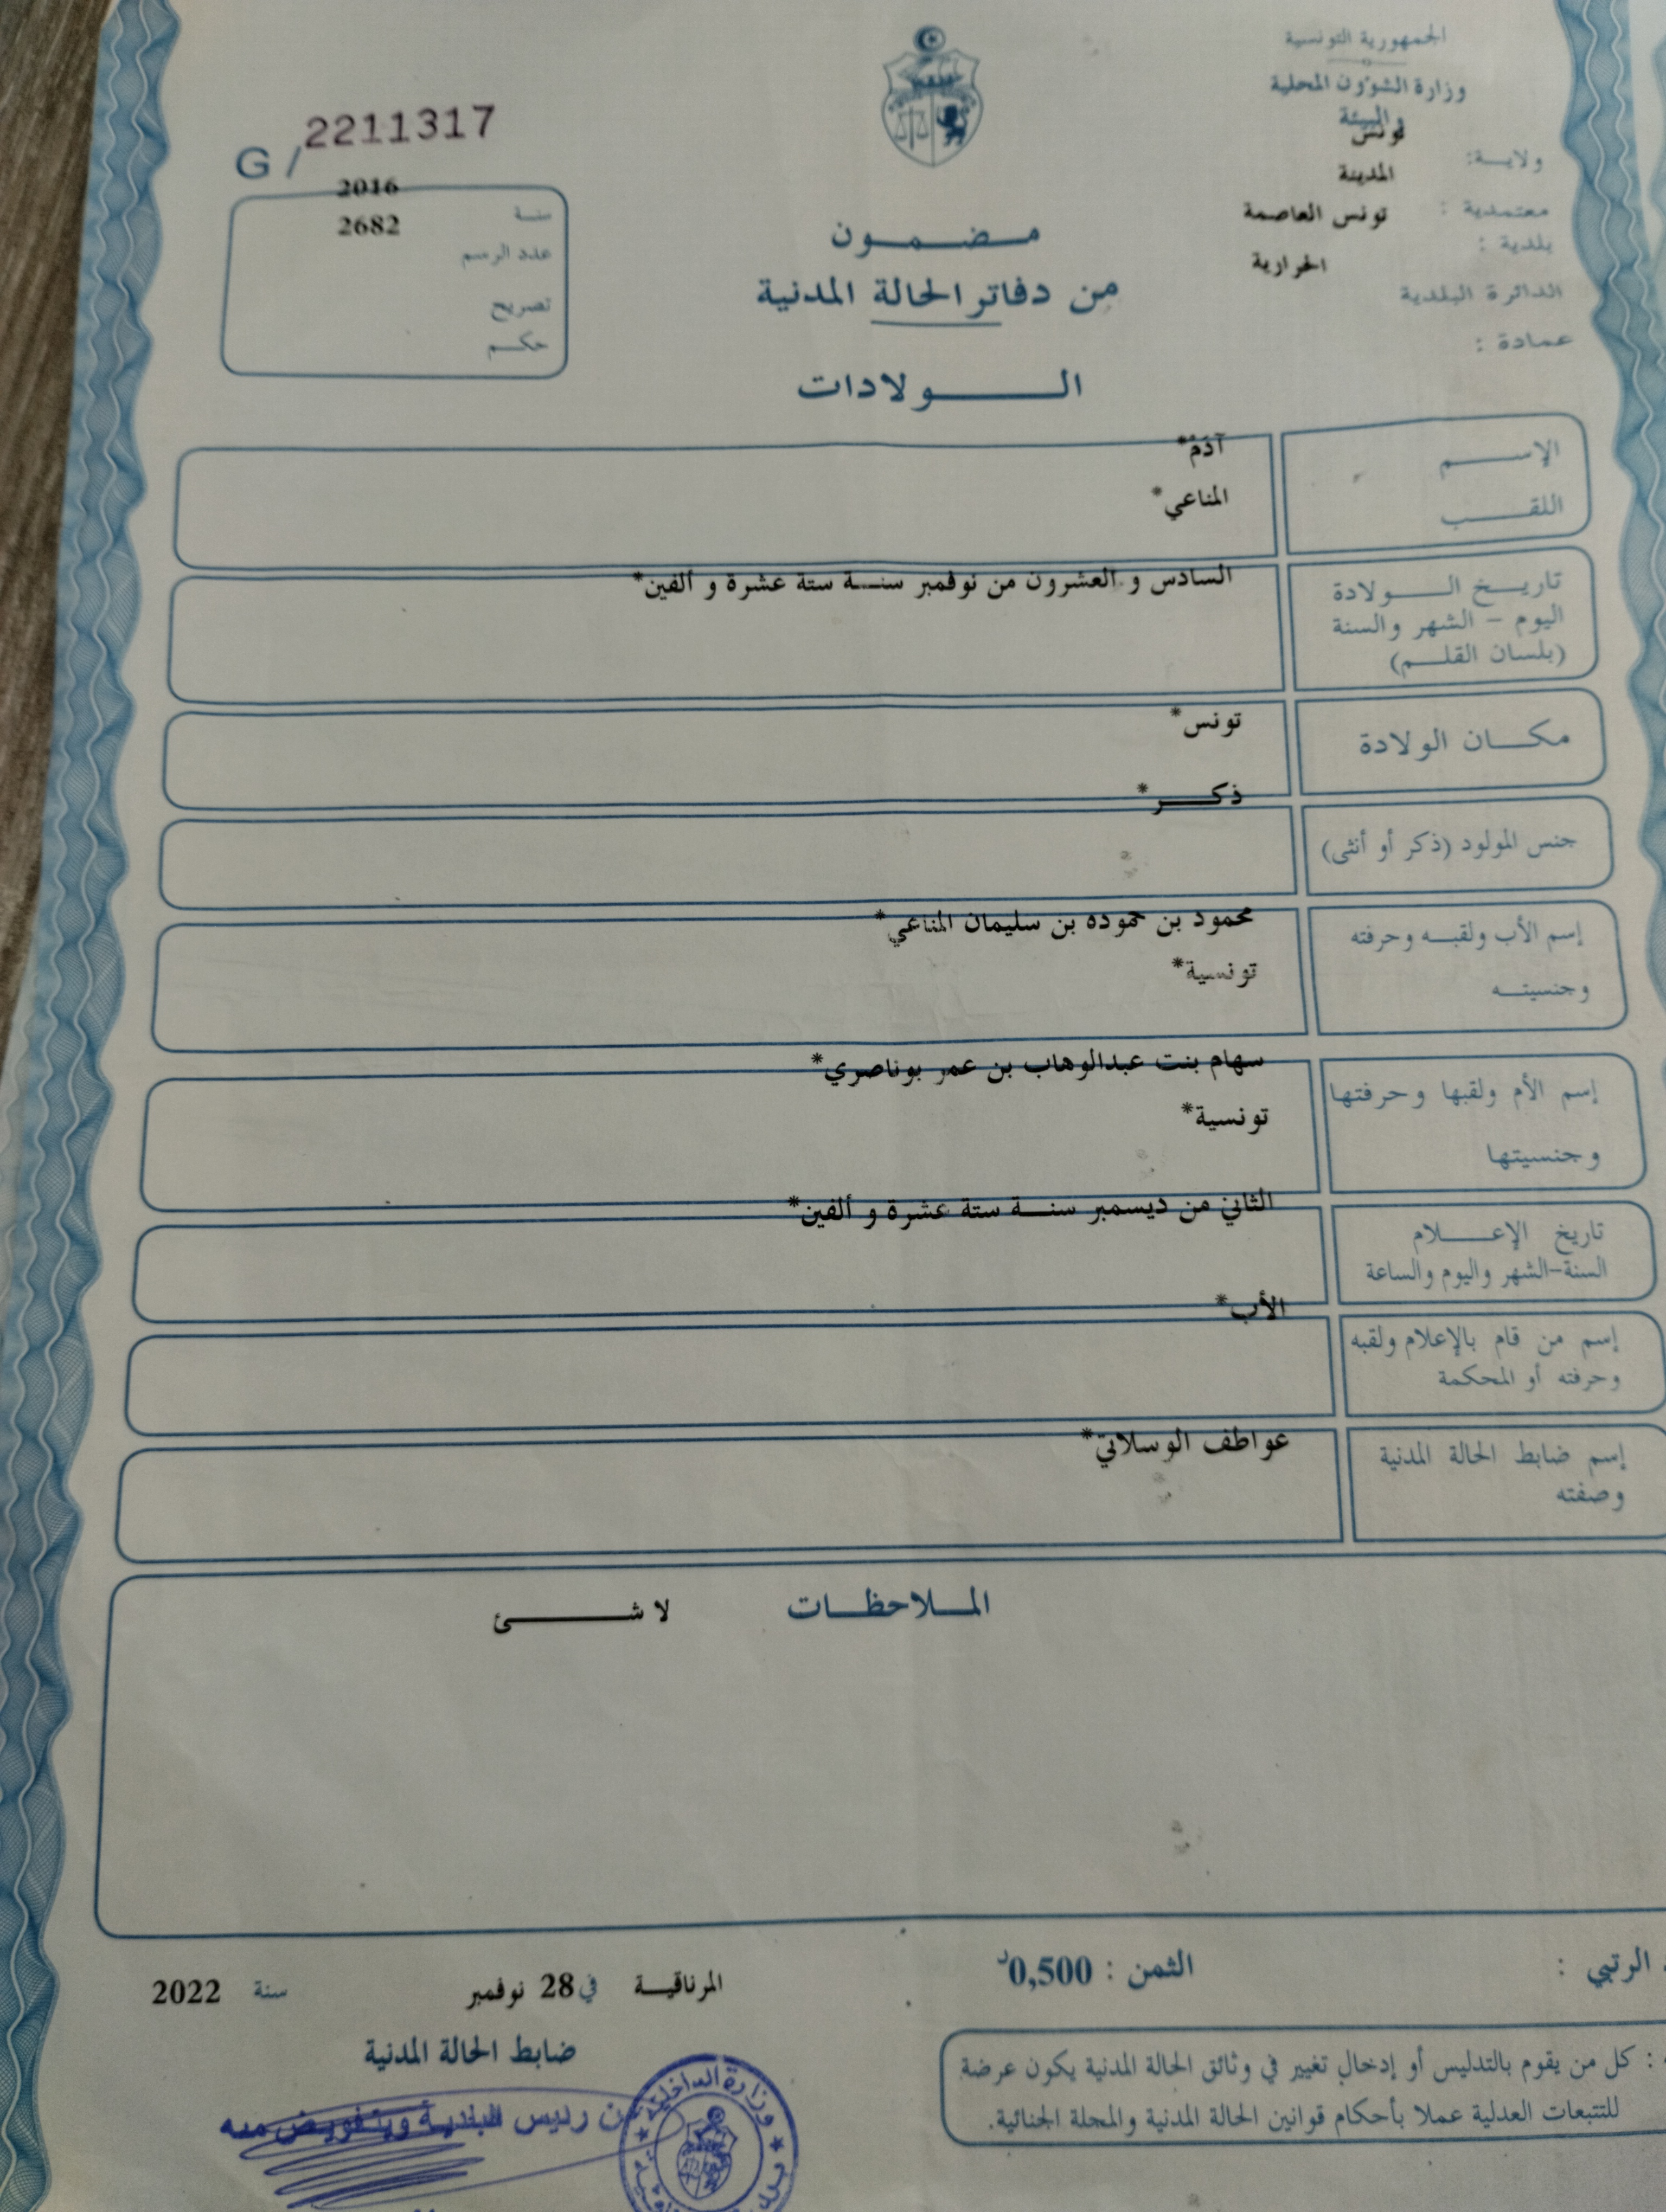 الجمهورية التونسية
وزارة الشؤون المحلية
و البيئة
ولاية: تونس
معتمدية : المدينة
بلدية : تونس العاصمة
الدائرة البلدية الحرارية
عمادة :
G / 2211317
سنة 2016
عدد الرسم 2682
تصريح
حكم
مضمون
من دفاتر الحالة المدنية
الولادات
الإسم آدم*
اللقب المناعي*
تاريخ الولادة السادس و العشرون من نوفمبر سنة ستة عشرة و ألفين*
اليوم - الشهر والسنة
(بلسان القلم)
مكان الولادة تونس*
جنس المولود (ذكر أو أنثى) ذكر*
إسم الأب ولقبه وحرفته محمود بن حموده بن سليمان المناعي*
وجنسيته تونسية*
إسم الأم ولقبها وحرفتها سهام بنت عبدالوهاب بن عمر بوناصري*
وجنسيتها تونسية*
تاريخ الإعلام الثاني من ديسمبر سنة ستة عشرة و ألفين*
السنة-الشهر واليوم والساعة
إسم من قام بالإعلام ولقبه الأب*
وحرفته أو المحكمة
إسم ضابط الحالة المدنية عواطف الوسلاتي*
وصفته
الملاحظات لا شئ
الرتبي :
الثمن : 0,500د
المرناقية في 28 نوفمبر سنة 2022
ضابط الحالة المدنية
: كل من يقوم بالتدليس أو إدخال تغيير في وثائق الحالة المدنية يكون عرضة
للتتبعات العدلية عملا بأحكام قوانين الحالة المدنية والمجلة الجنائية.
عن رئيس البلدية وبتفويض منه
وزارة الداخلية